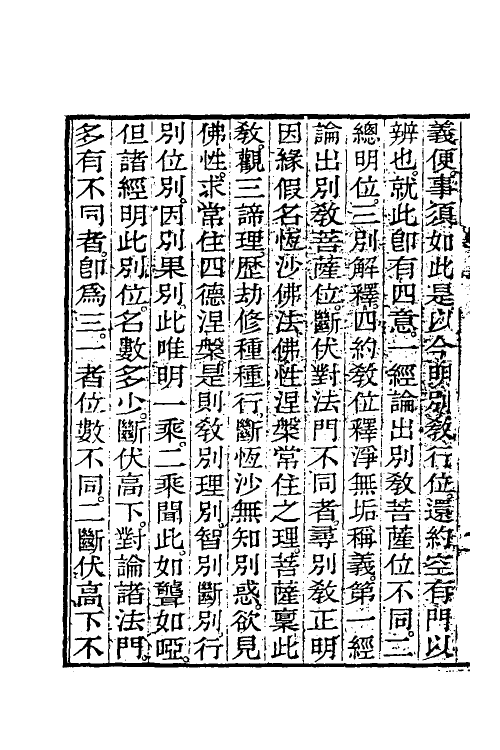 義便事須如此是以今明別教行位還約空有門以
辨也就此卽有四意一經論出別教菩薩位不同二
總明位三別解釋四約教位釋淨無垢稱義第一經
論出別教菩薩位斷伏對法門不同者尋別教正明
因緣假名恆沙佛法佛性涅槃常住之理菩薩稟此
教觀三諦理歷劫修種種行斷恆沙無知別惑欲見
佛性求常住四德涅槃是則教別理別智別斷別行
別位別因別果別此唯明一乘二乘聞此如聾如啞
但諸經明此別位名數多少斷伏高下對論諸法門
多有不同者卽爲三一者位數不同二斷伏高下不